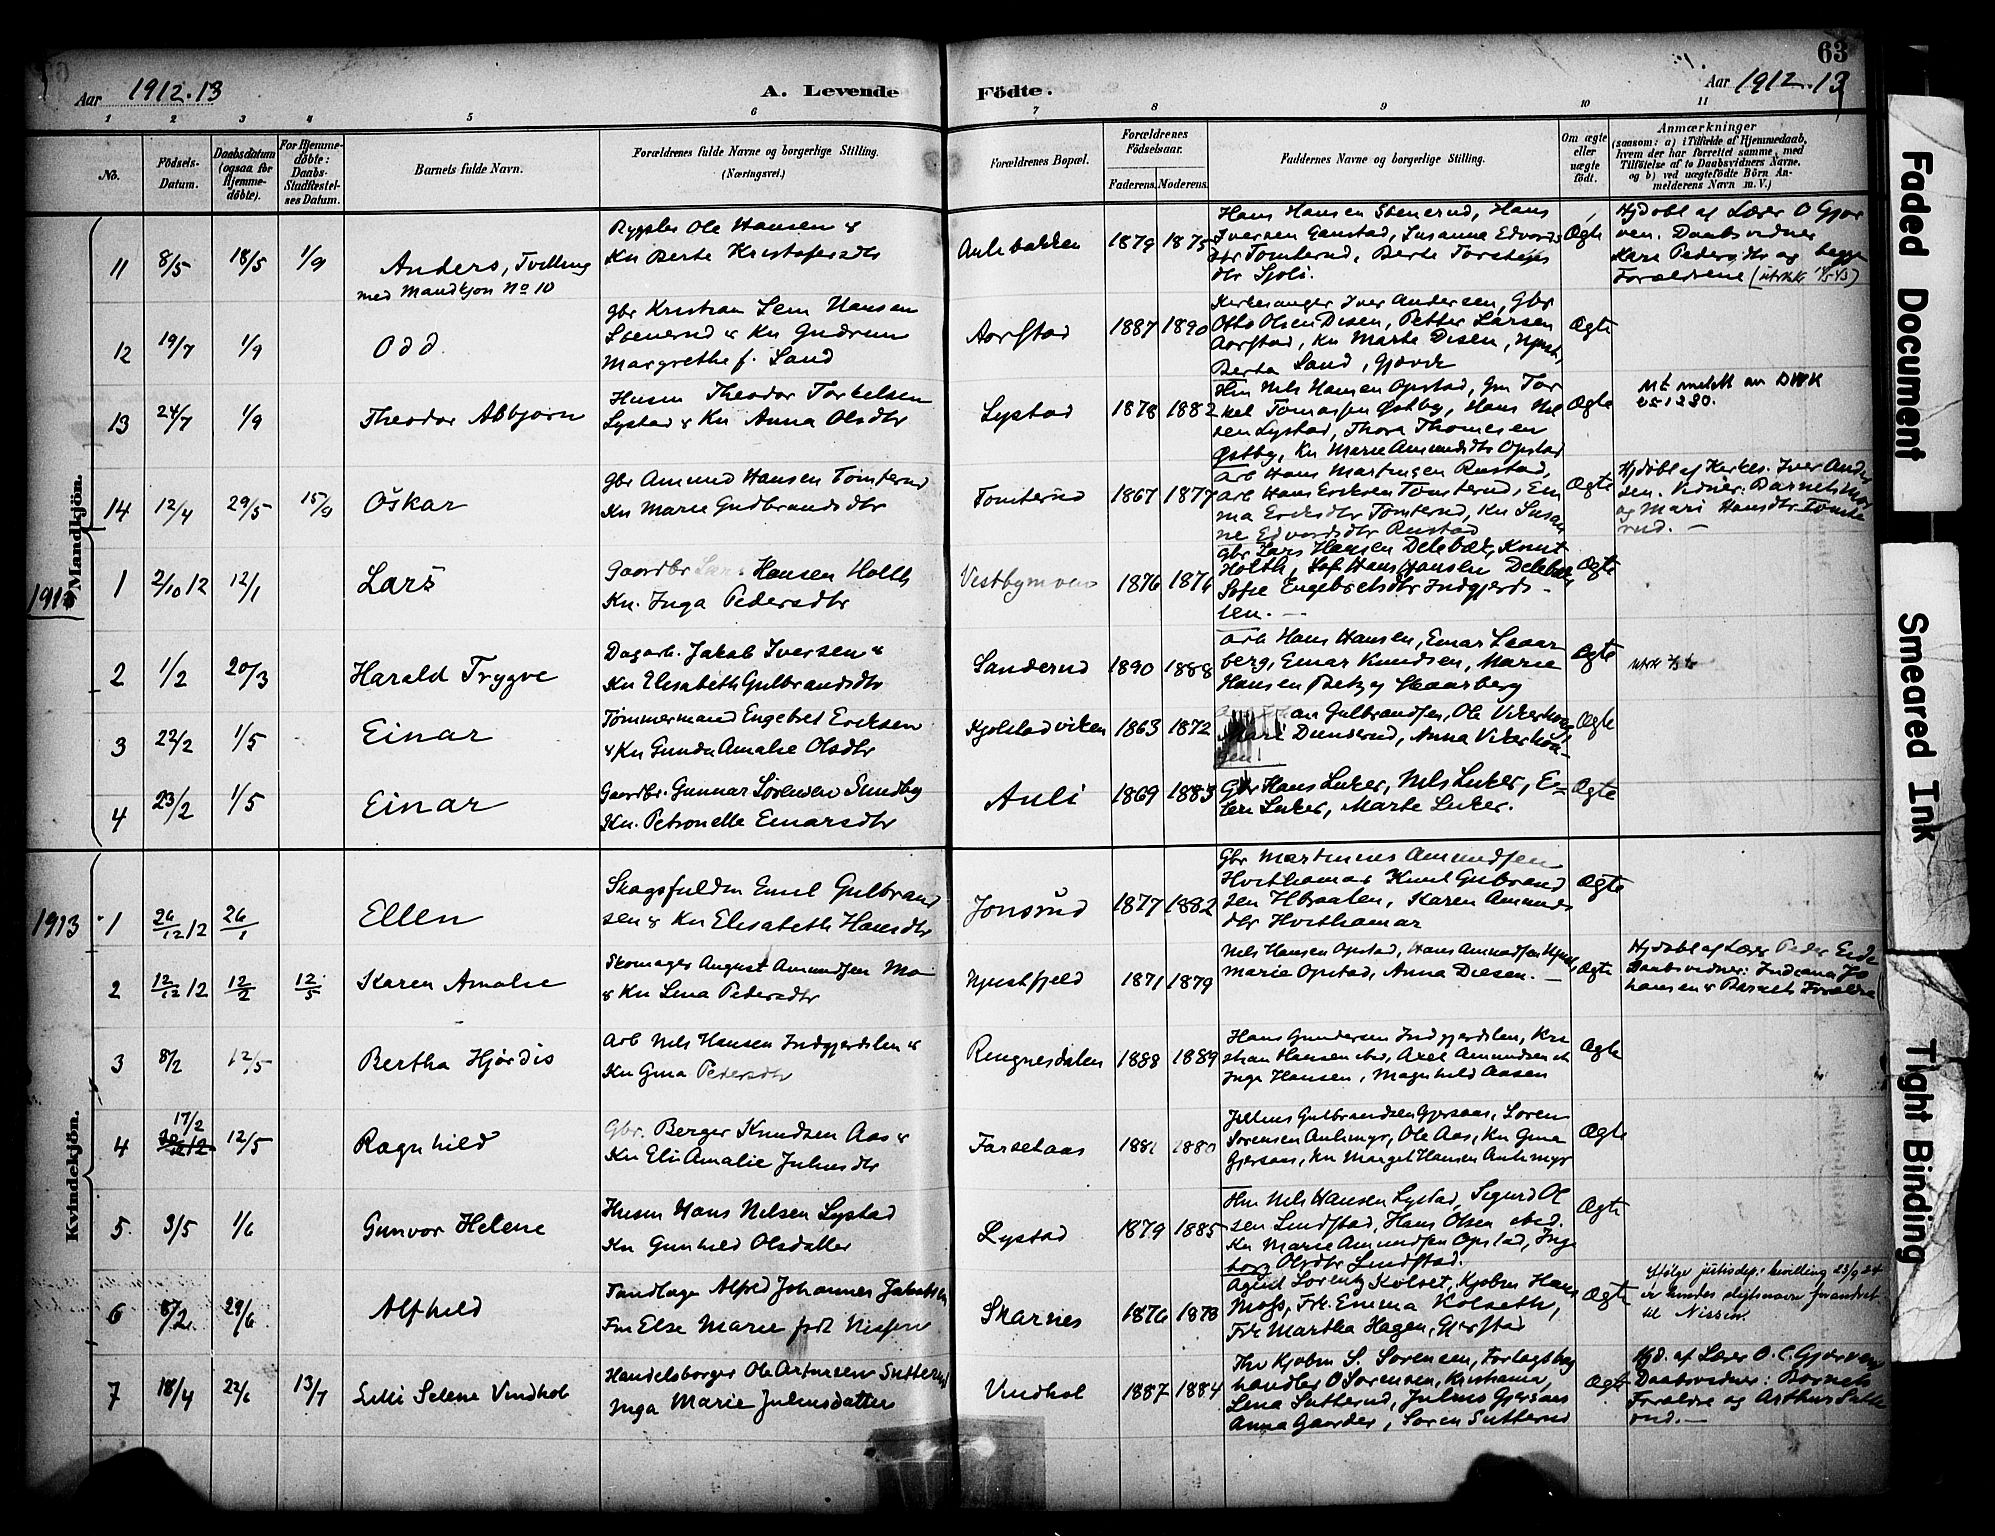 63
Aar 1912.13
A. Levende Födte.
Aar 1912.13
1 2 3 4 5 6 7 8 9 10 11
No.
Födsels-Datum.
Daabsdatum (ogsaa for Hjemme-døbte).
For Hjemme-døbte: Daabs-Stadfæstel-ses Datum.
Barnets fulde Navn.
Forældrenes fulde Navne og borgerlige Stilling. (Næringsvei.)
Forældrenes Bopæl.
Forældrenes Födselsaar.
Faderens. Moderens.
Faddernes Navne og borgerlige Stilling.
Om ægte eller uægte födt.
Anmærkninger
(saasom: a) i Tilfælde af Hjemmedaab,
hvem der har forrettet samme, med
Tilföielse af to Daabsvidners Navne.
og b) ved uægtefödte Börn An-
melderens Navn m. V.)
Mandkjön.
11 8/5 18/5 1/9
Anders, Tvilling
med Mandkjøn No 10
Ole Hansen &
Kn Berte Kristofersdtr
Aulebakken 1879 1875
Hans Hansen Stenerud, Hans
Iversen Ganstad, Susanna Edvards
dtr Tomterud, Berte Torstens
dtr Sjoli.
Ægte
Hjdøbt af Lærer O Gjør
ven. Daabsvidner
Kari Pedersdtr og begge
Forældrene
12 19/7 1/9
Odd
Gbr Kristian Lem Hansen
Stenerud & Kn Gudrun
Margrethe f. Sand
Aorstad 1887 1890
Kirkesanger Iver Andersen, Gbr
Otto Olsen Disen, Petter Larsen
Aorstad, Kn Marte Disen,
Berta Sand, Gjøvik
Ægte
13 24/7 1/9
Theodor Asbjørn
Husm Theodor Torkelsen
Lystad & Kn Anna Olsdtr
Lystad 1878 1882
Hm Nils Hansen Opstad, Gm Tor
kel Tomassen Østby, Hans Nil
sen Lystad, Thora Thomesen
Østby, Kn Marie Amundsdtr Opstad
Ægte
14 12/4 29/5 15/9
Oskar
Gbr Amund Hansen Tomterud
Kn Marie Gudbrandsdtr
Tomterud 1867 1877
Arb Hans Martinsen Rustad,
Arb Hans Eriksen Tomterud, Em
ma Eriksdtr Tomterud, Kn Susan
ne Edvardsdtr Rustad
Ægte
Hjdøbt af Kirkes. Iver Ander
sen. Vidner: Barnets Mor
og Mari Hansdtr Tomte
rud. —
1913
1 2/10 12 12/1
Lars
Gaardbr Lars Hansen Holth
Kn. Inga Pedersdtr
Vestbymoen 1876 1876
Gbr Lars Hansen Delebæk, Knut
Holth, Hans Hansen Delebæk,
Sofie Engebretsdtr Indgjerds-
len. —
Ægte
2 1/2 20/3
Harald Trygve
Dagarb. Jakob Iversen &
Kn Elisabeth Gulbrandsdtr
Sanderud 1890 1888
Arb Hans Hansen, Einar Skaar
berg, Einar Knudsen, Marie
Hansen Betzy Skaarberg
Ægte
3 22/2 1/5
Einar
Tømmermand Engebret Eriksen
& Kn Gunda Amalie Olsdtr
Kjolstadviken 1863 1872
Gulbrandsen, Ole Vikerhaug
Mari Dunderud, Anna Vikerhau-
gen
Ægte
4 23/2 1/5
Einar
Gaardbr. Gunnar Sørensen Sundby
Kn. Petronelle Einarsdtr
Auli 1869 1883
Gbr Hans Luker, Nils Luker, E=
len Luker, Marte Luker.
Ægte
Kvindekjön.
1913
1 26/12 12 26/1
Ellen
Skogsfuldm Emil Gulbrand
sen & Kn Elisabeth Hansdtr
Jonsrud 1877 1882
Gbr Martinus Amundsen
Hvithamar Knut Gulbrand
sen Hbraaten, Karen Amunds
dtr Hvithamar
Ægte
2 12/12 12 12/2 12/5
Karen Amalie
Skomager August Amundsen Mo
& Kn Lina Pedersdtr
Njustfjeld 1871 1879
Nils Hansen Opstad, Hans Amundsen
Marie Opstad, Anna Diesen. —
Ægte
Hjdøbt af Lærer Peder Eide
Daabsvidner: Indiana Jo
hansen & Barnets Forældre
3 8/2 12/5
Bertha Hjørdis
Arb Nils Hansen Indgjerdslen &
Kn Gina Pedersdtr
Rengnesdalen 1888 1889
Hans Gundersen Indgjerdslen, Kri
stian Hansen sted, Axel Amundsen
Inga Hansen, Magnhild Aasen
Ægte
4 17/2 12/5
Ragnhild
Gbr. Berger Knudsen Aas &
Kn Eli Amalie Juliusdtr
Farsetaas 1881 1880
Julius Gulbrandsen Gjersaas, Soren
Sorensen Aulimyr, Ole Aas, Kn Gina
Gjersaas, Kn Marget Hansen Aulimyr
Ægte
5 3/5 1/6
Gunvor Helene
Husm Hans Nilsen Lystad
Kn Gunhild Olsdatter
Lystad 1879 1885
Hm Nils Hansen Lystad, Sigurd Ol
sen Lundstad, Hans Olsen sted.
Kn Marie Amundsen Opstad, Inge
borg Olsdtr Lundstad.
Ægte
6 8/2 29/6
Alfhild
Tandlæge Alfred Johannes Jakobsen
Fru Else Marie født Nissen
Skarnes 1876 1878
Agent Lorentz Kolset, Kjøbm Hans
Moss, Frk. Emma Kolseth,
Frk Martha Hagen, Gjerstad
Ægte
Ifølge justisdep.s bevilling 23/9 24
er hendes slegtsnavn forandret
til Nissen.
7 18/4 22/6 13/7
Lilli Selene Vindhol
Handelsborger Ole Arturssen Sutterud
Inga Marie Juliusdatter
Vindhol 1887 1884
Kjøbm S. Sorensen, Forlagsbog
handler O Sorensen, Kristiania,
Lina Sutterud, Julius Gjersaas
Anna Gaarder, Soren Sutterud
Ægte
Hjd. af Lærer O. C. Gjørven
Daabsvidner: Barnets
Forældre og Arthur Sutte
rud. —
Faded Document
Smeared Ink
Tight Binding